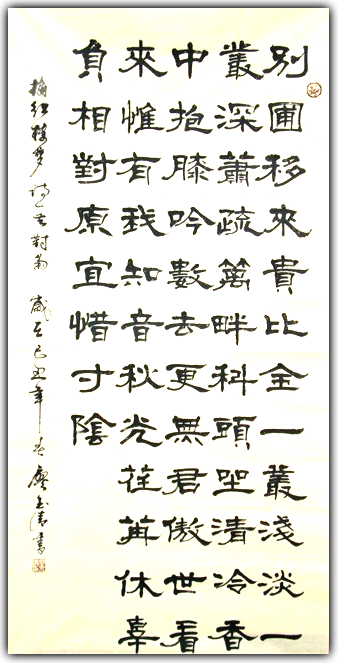 別圃移來貴比金一叢淺淡一
叢深蕭疏籬畔科頭坐清冷香
中抱膝吟數去更無君傲世看
來惟有我知音秋光荏苒休辜
負相對原宜惜寸陰
摘紅樓夢詩一首對菊 歲在己丑年春 書